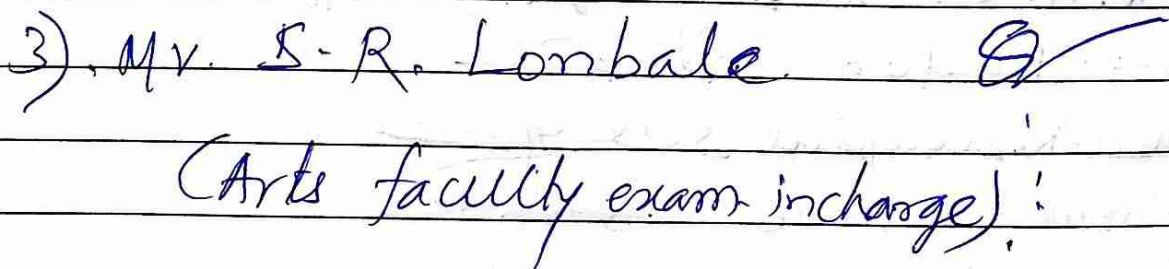 3). Mr. S. R. Lonbale
(Arts faculty exam incharge)